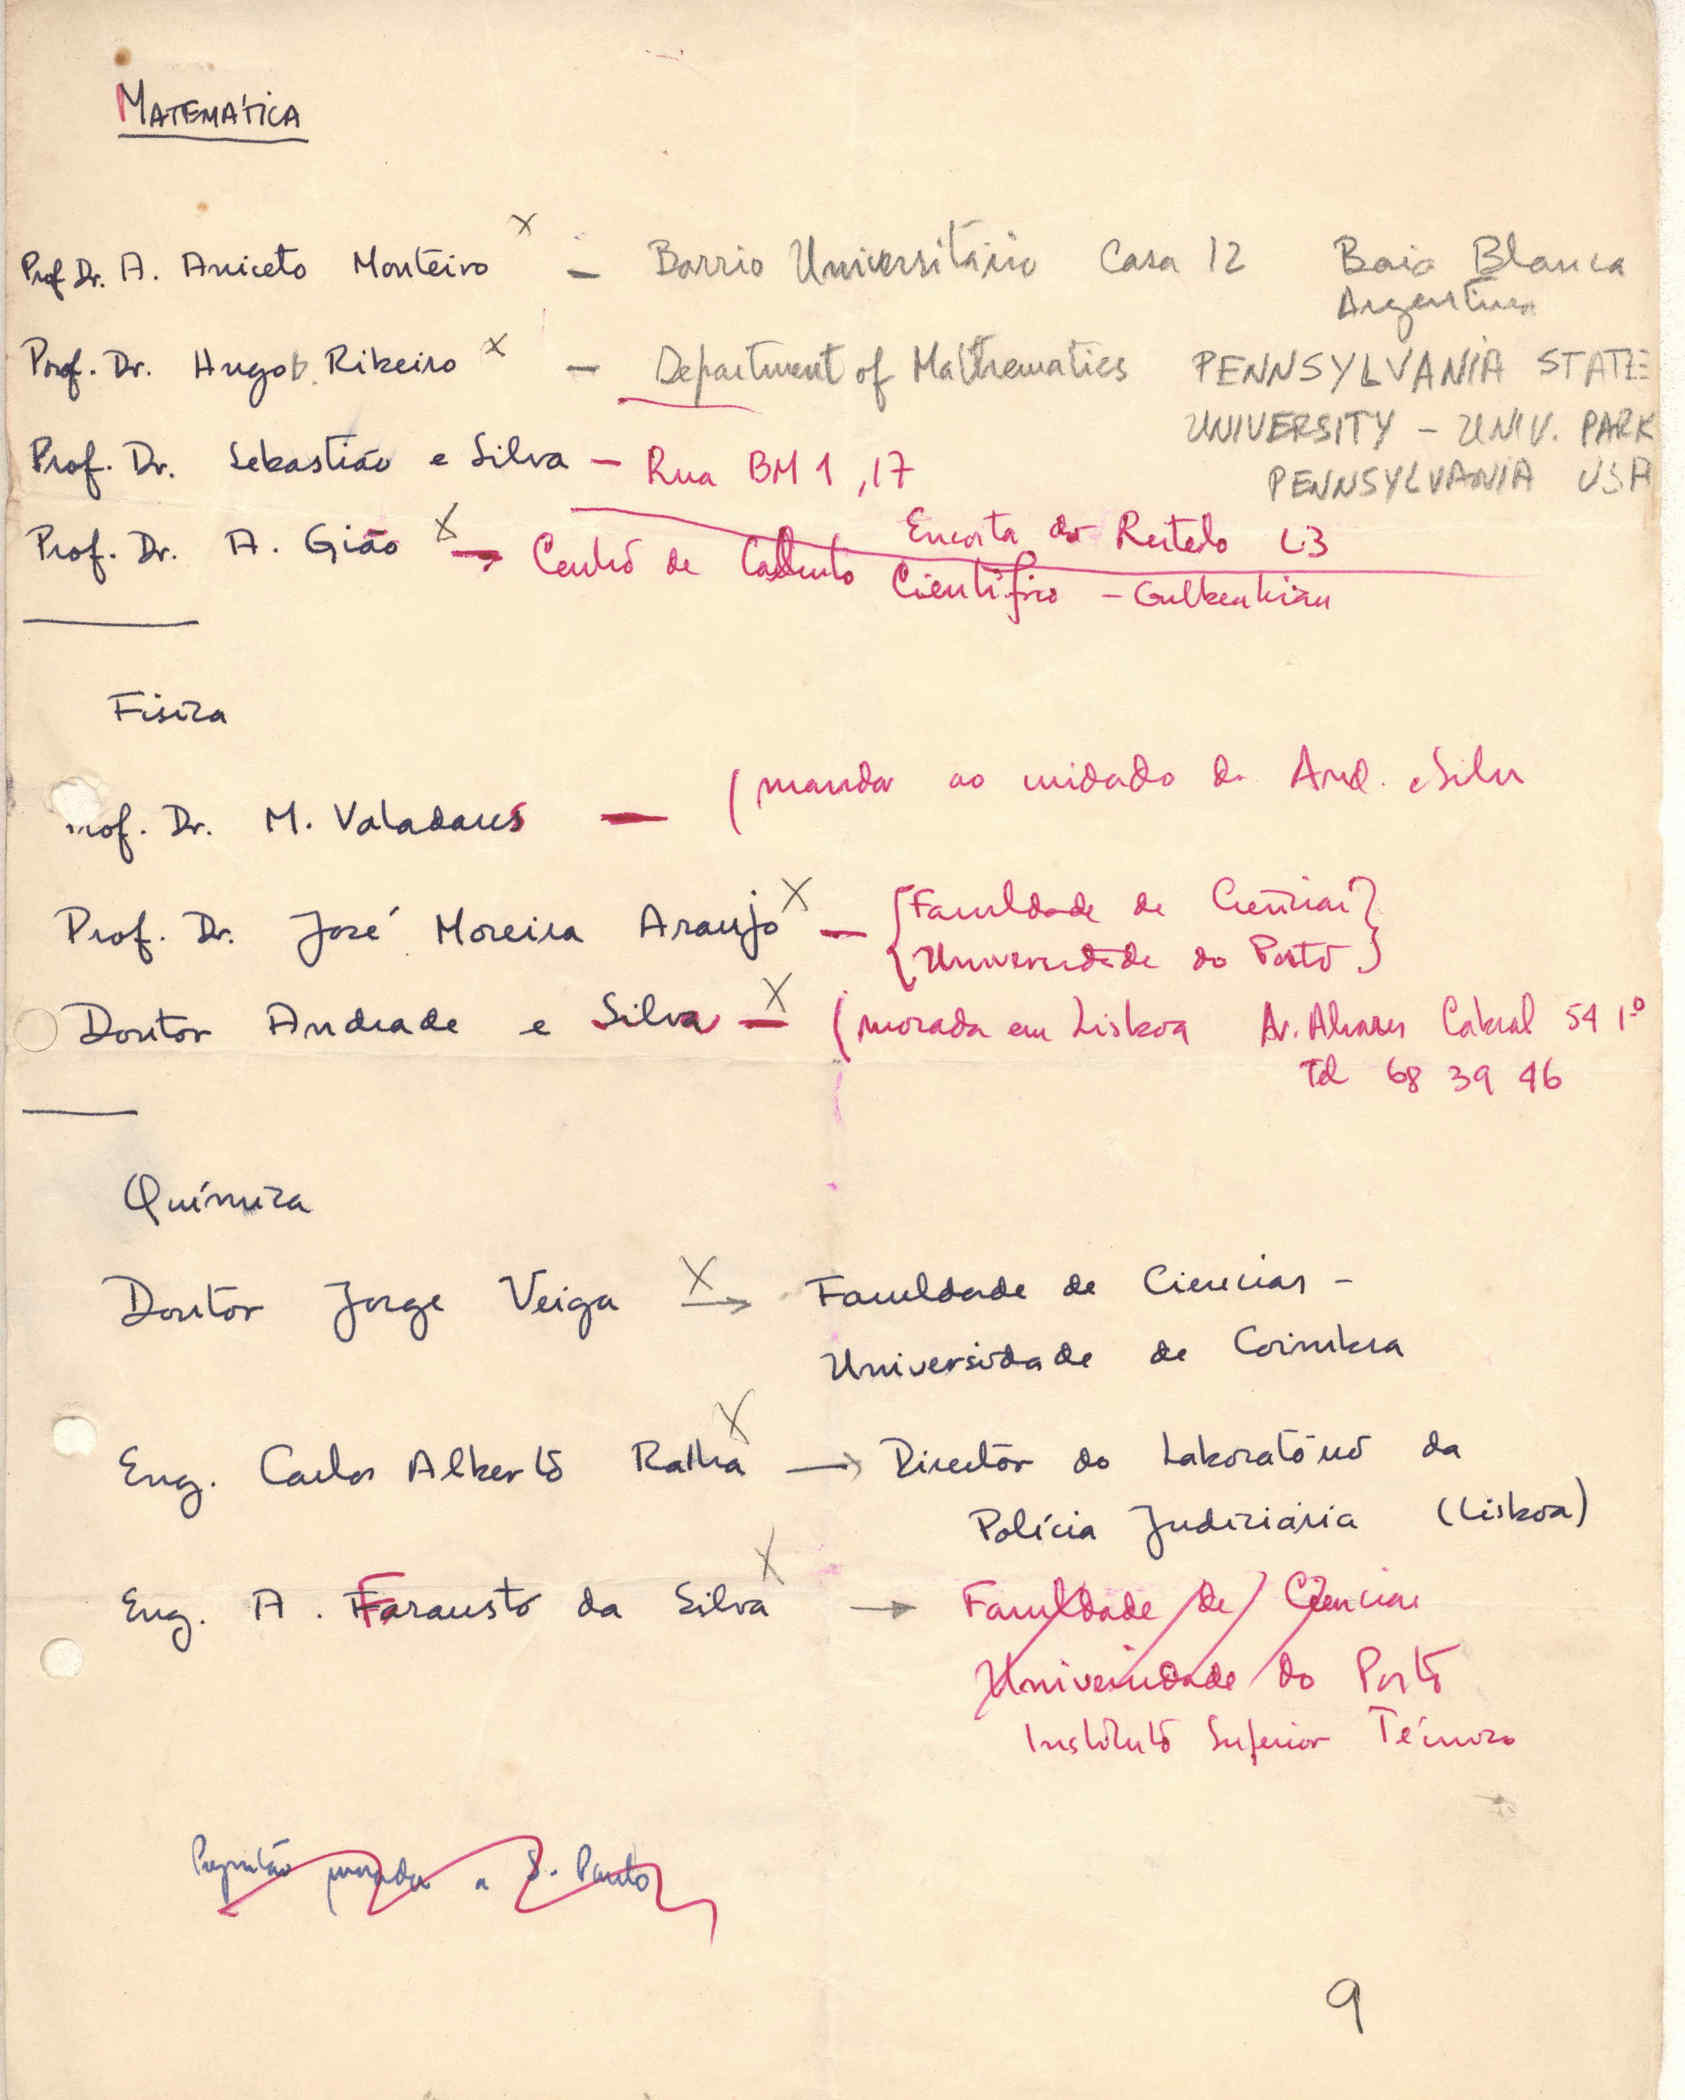 MATEMÁTICA
Prof. Dr. A. Aniceto Monteiro X — Barrio Universitário Casa 12 Baia Blanca
Argentina
Prof. Dr. Hugo Ribeiro X — Department of Mathematics PENNSYLVANIA STATE
UNIVERSITY – UNIV. PARK
PENNSYLVANIA USA
Prof. Dr. Sebastião e Silva — Rua BM 1, 17
Encosta do Restelo L3
Prof. Dr. A. Gião X → Centro de Cálculo Científico – Gulbenkian
Física
Prof. Dr. M. Valadares — (mandar ao cuidado de And. e Silva
Prof. Dr. José Moreira Araujo X — {Faculdade de Ciências}
{Universidade do Porto}
Doutor Andrade e Silva — X (morada em Lisboa Av. Alvares Cabral 54 1.º
Tel 68 39 46
Química
Doutor Jorge Veiga X → Faculdade de Ciencias –
Universidade de Coimbra
Eng. Carlos Alberto Ralha X → Director do Laboratório da
Polícia Judiciária (Lisboa)
Eng. A. Farausto da Silva X → Faculdade de Ciencias
Universidade do Porto
Instituto Superior Técnico
morada a S. Paulo
9